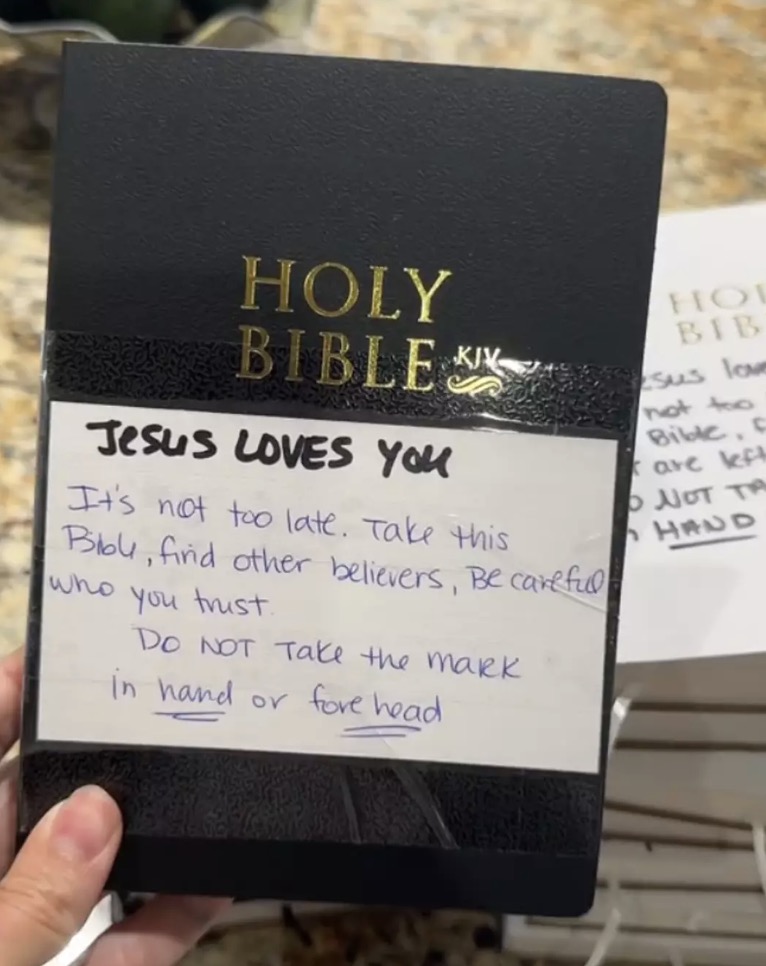 HOLY
BIBLE KJV
JESUS LOVES YOU
It's not too late. Take this
Bible, find other believers, Be careful
who you trust.
Do NOT Take the mark
in hand or fore head
HO
BIB
esus lov
not too
Bible,
are left
NOT TA
HAND